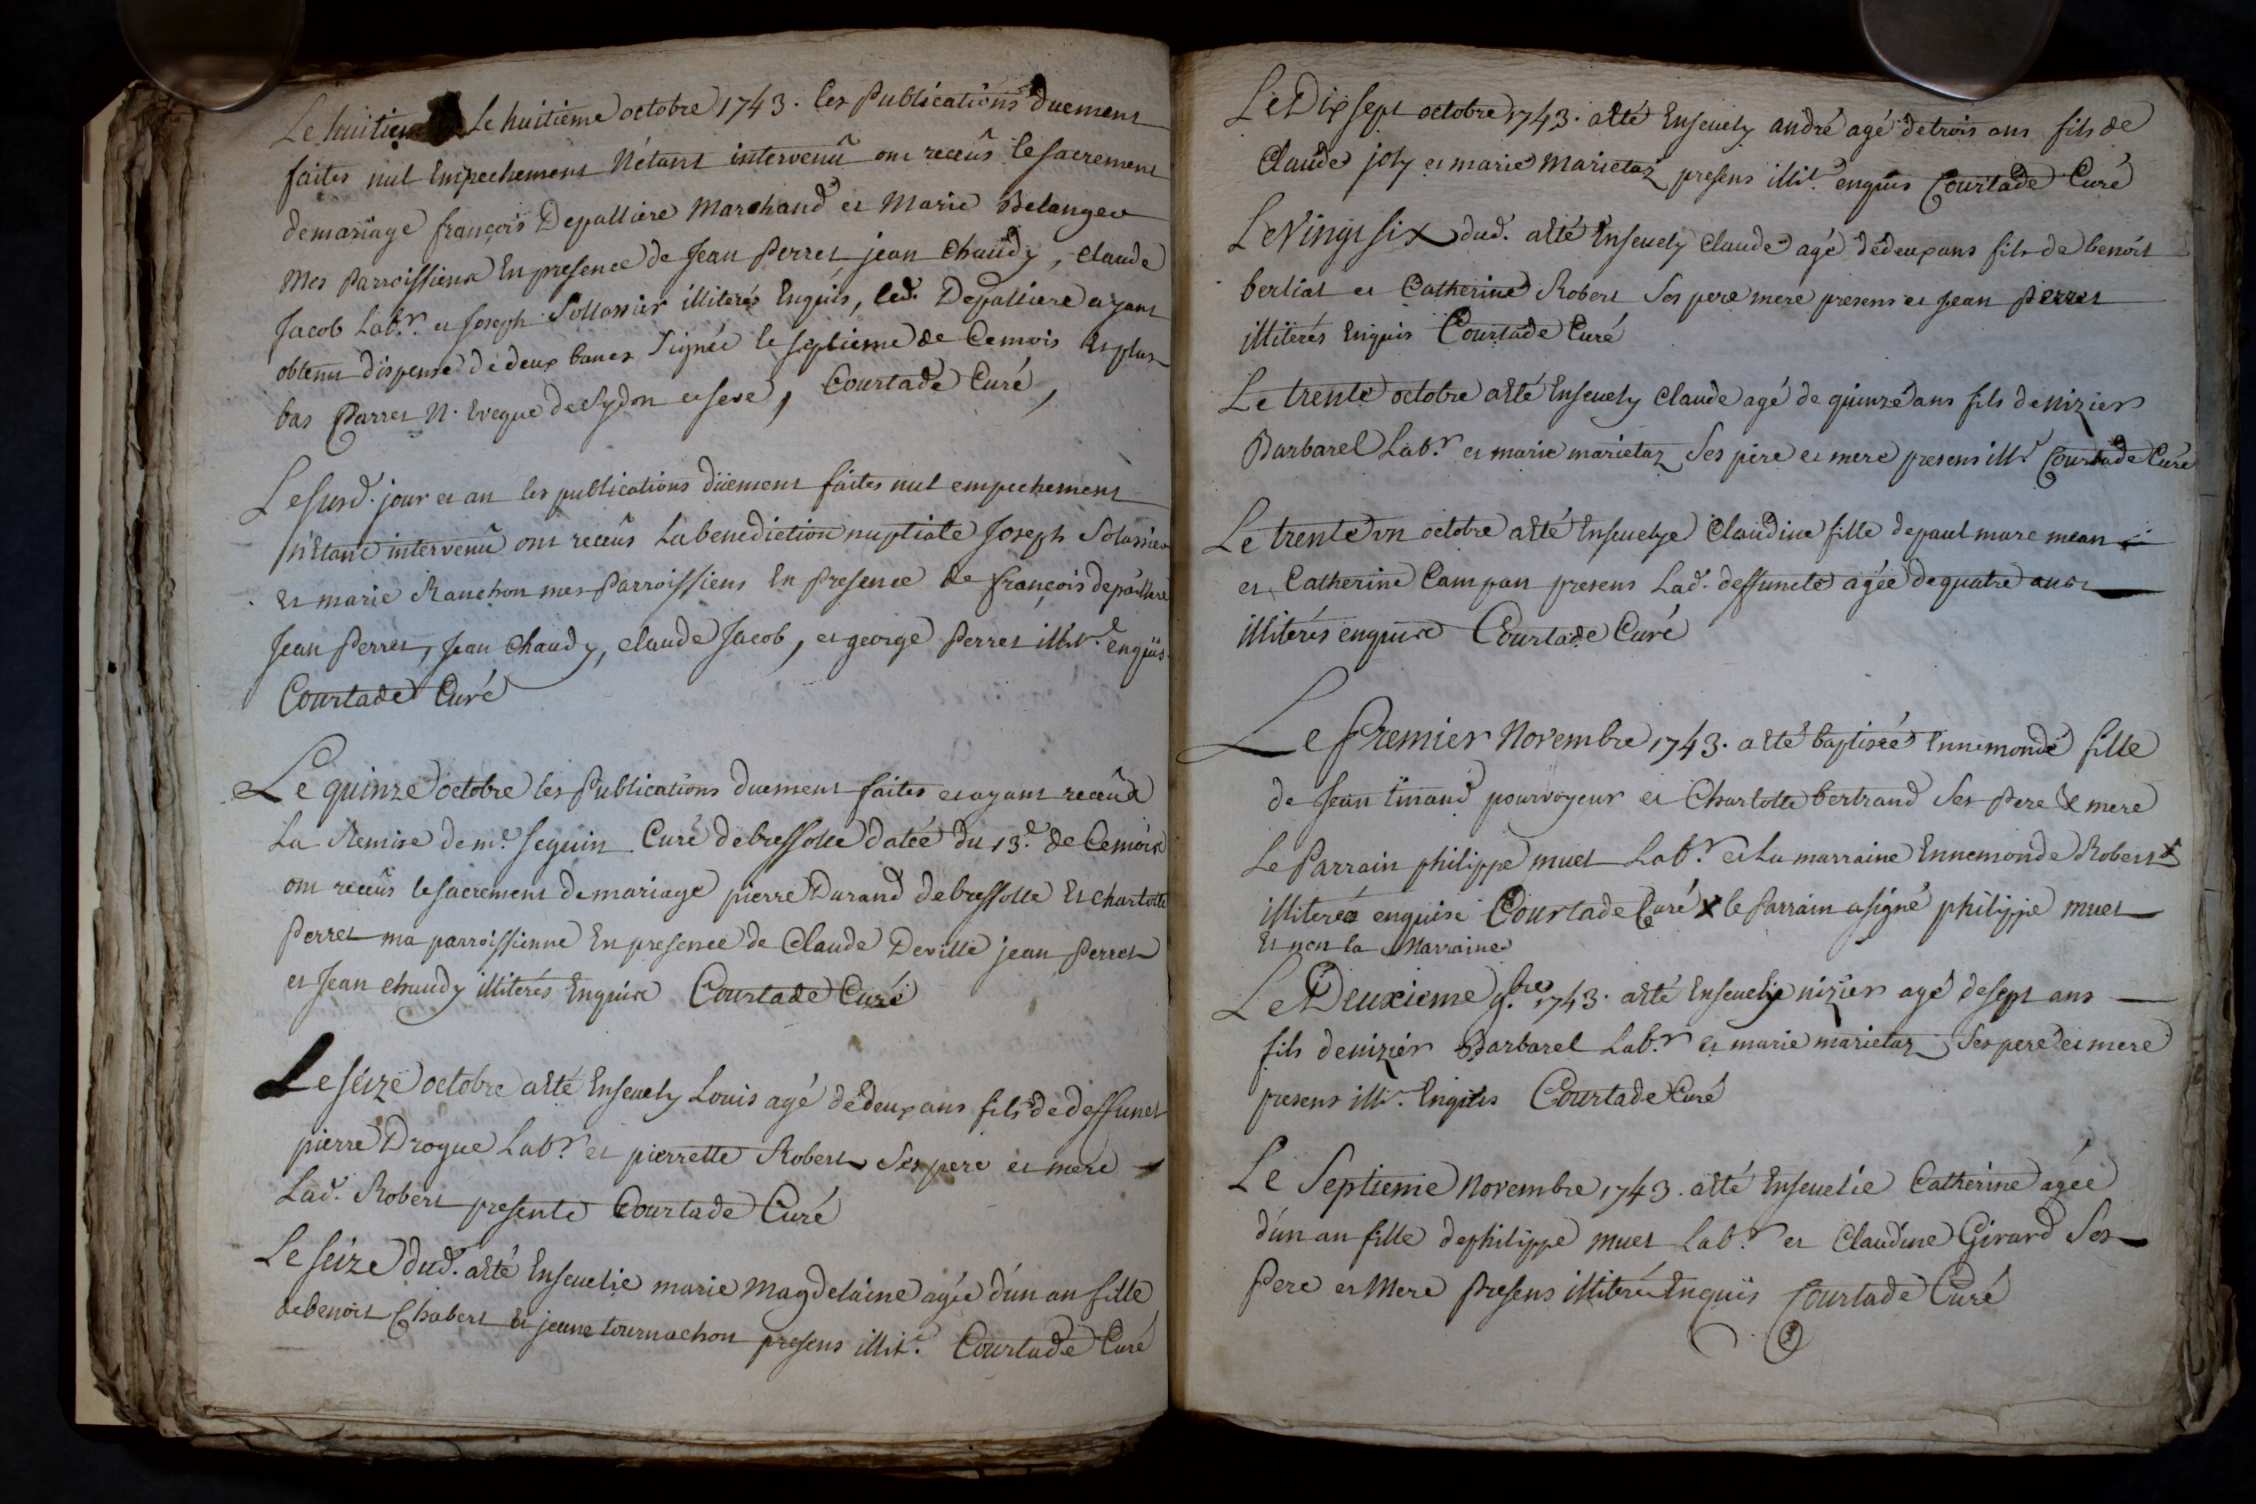 Le huitiem Le huitieme octobre 1743. les Publications duement
faites nul Empechement N'étant intervenû ont receûs le sacrement
de mariage françois Depalliere Marchand et Marie Belanger
Mes Parroissiens En presence de Jean Perret jean Chaudy, claude
Jacob Lab.r et Joseph Sollassier illiterés Enquis, led. Depalliere ayant
obtenu dispense de deux bancs signée le septieme de Cemois Et plus
bas Parret N. Eveque de Sydon et scélé, Courtade Curé,
Le susd. jour et an les publications düement faites nul empechement
N'Etant intervenû ont receûs La benediction nuptiale Joseph Solassier
Et marie Ranchon mes Parroissiens En Presence de françois depalliere
Jean Perret, Jean Chaudy, claude Jacob, et george Perret illit.r enquis
Courtade Curé
Le quinze octobre les Publications duement faites et ayant receûe
La Remise de m.e Seguin Curé de bressolle datée du 13.e de Cemois
ont receûs le sacrement de mariage pierre Durand de bressolle Et charlotte
Perret ma parroissienne En presence de Claude Deville jean Perret
et Jean chaudy illiterés Enquise Courtade Curé
Le séize octobre a été Ensevely Louis agé de deux ans fils de deffunct
pierre Drogue Lab.r et pierrette Robert Ses pere et mere
Lad. Robert presente Courtade Curé
Le séize dud. a été Ensevelie marie Magdelaine agée d'un an fille
de benoit Chabert et jeane tournachon presens illit.r Courtade Curé
Le Dix sept octobre 1743. a été Ensevely andré agé de trois ans fils de
Claude joly et marie Marietaz presens illit.r enquis Courtade Curé
Le Vingt six dud. a été Ensevely Claude agé de deux ans fils de benoit
berliat et Catherine Robert Ses pere mere presens et Jean Perret
illiterés Enquis Courtade Curé
Le trente octobre a été Ensevely Claude agé de quinze ans fils de nizier
Barbarel Lab.r et marie marietaz Ses pere et mere presens ill.r Courtade Curé
Le trente vn octobre a été Ensevelye Claudine fille de paul marc mean
et Catherine Campan presens Lad. deffuncte agée de quatre ans
illiterés enquise Courtade Curé
Le Premier Novembre 1743. a été baptisée Ennemonde fille
de Jean pourvoyeur et Charlotte bertrand Ses Pere & mere
Le Parrain philippe muet Lab.r et La marraine Ennemonde Robert x
illiterés enquise Courtade Curé x le Parrain a signé philippe muet
Et non la Marraine
Le Deuxieme 9.bre 1743. a été Ensevely nizier agé de sept ans
fils de nizier Barbarel Lab.r et marie marietaz Ses pere et mere
presens ill.r Enquis Courtade Curé
Le Septieme Novembre 1743. a été Ensevelie Catherine agée
d'un an fille de philippe muet Lab.r et Claudine Girard Ses
Pere et Mere Presens illiterés Enquis Courtade Curé